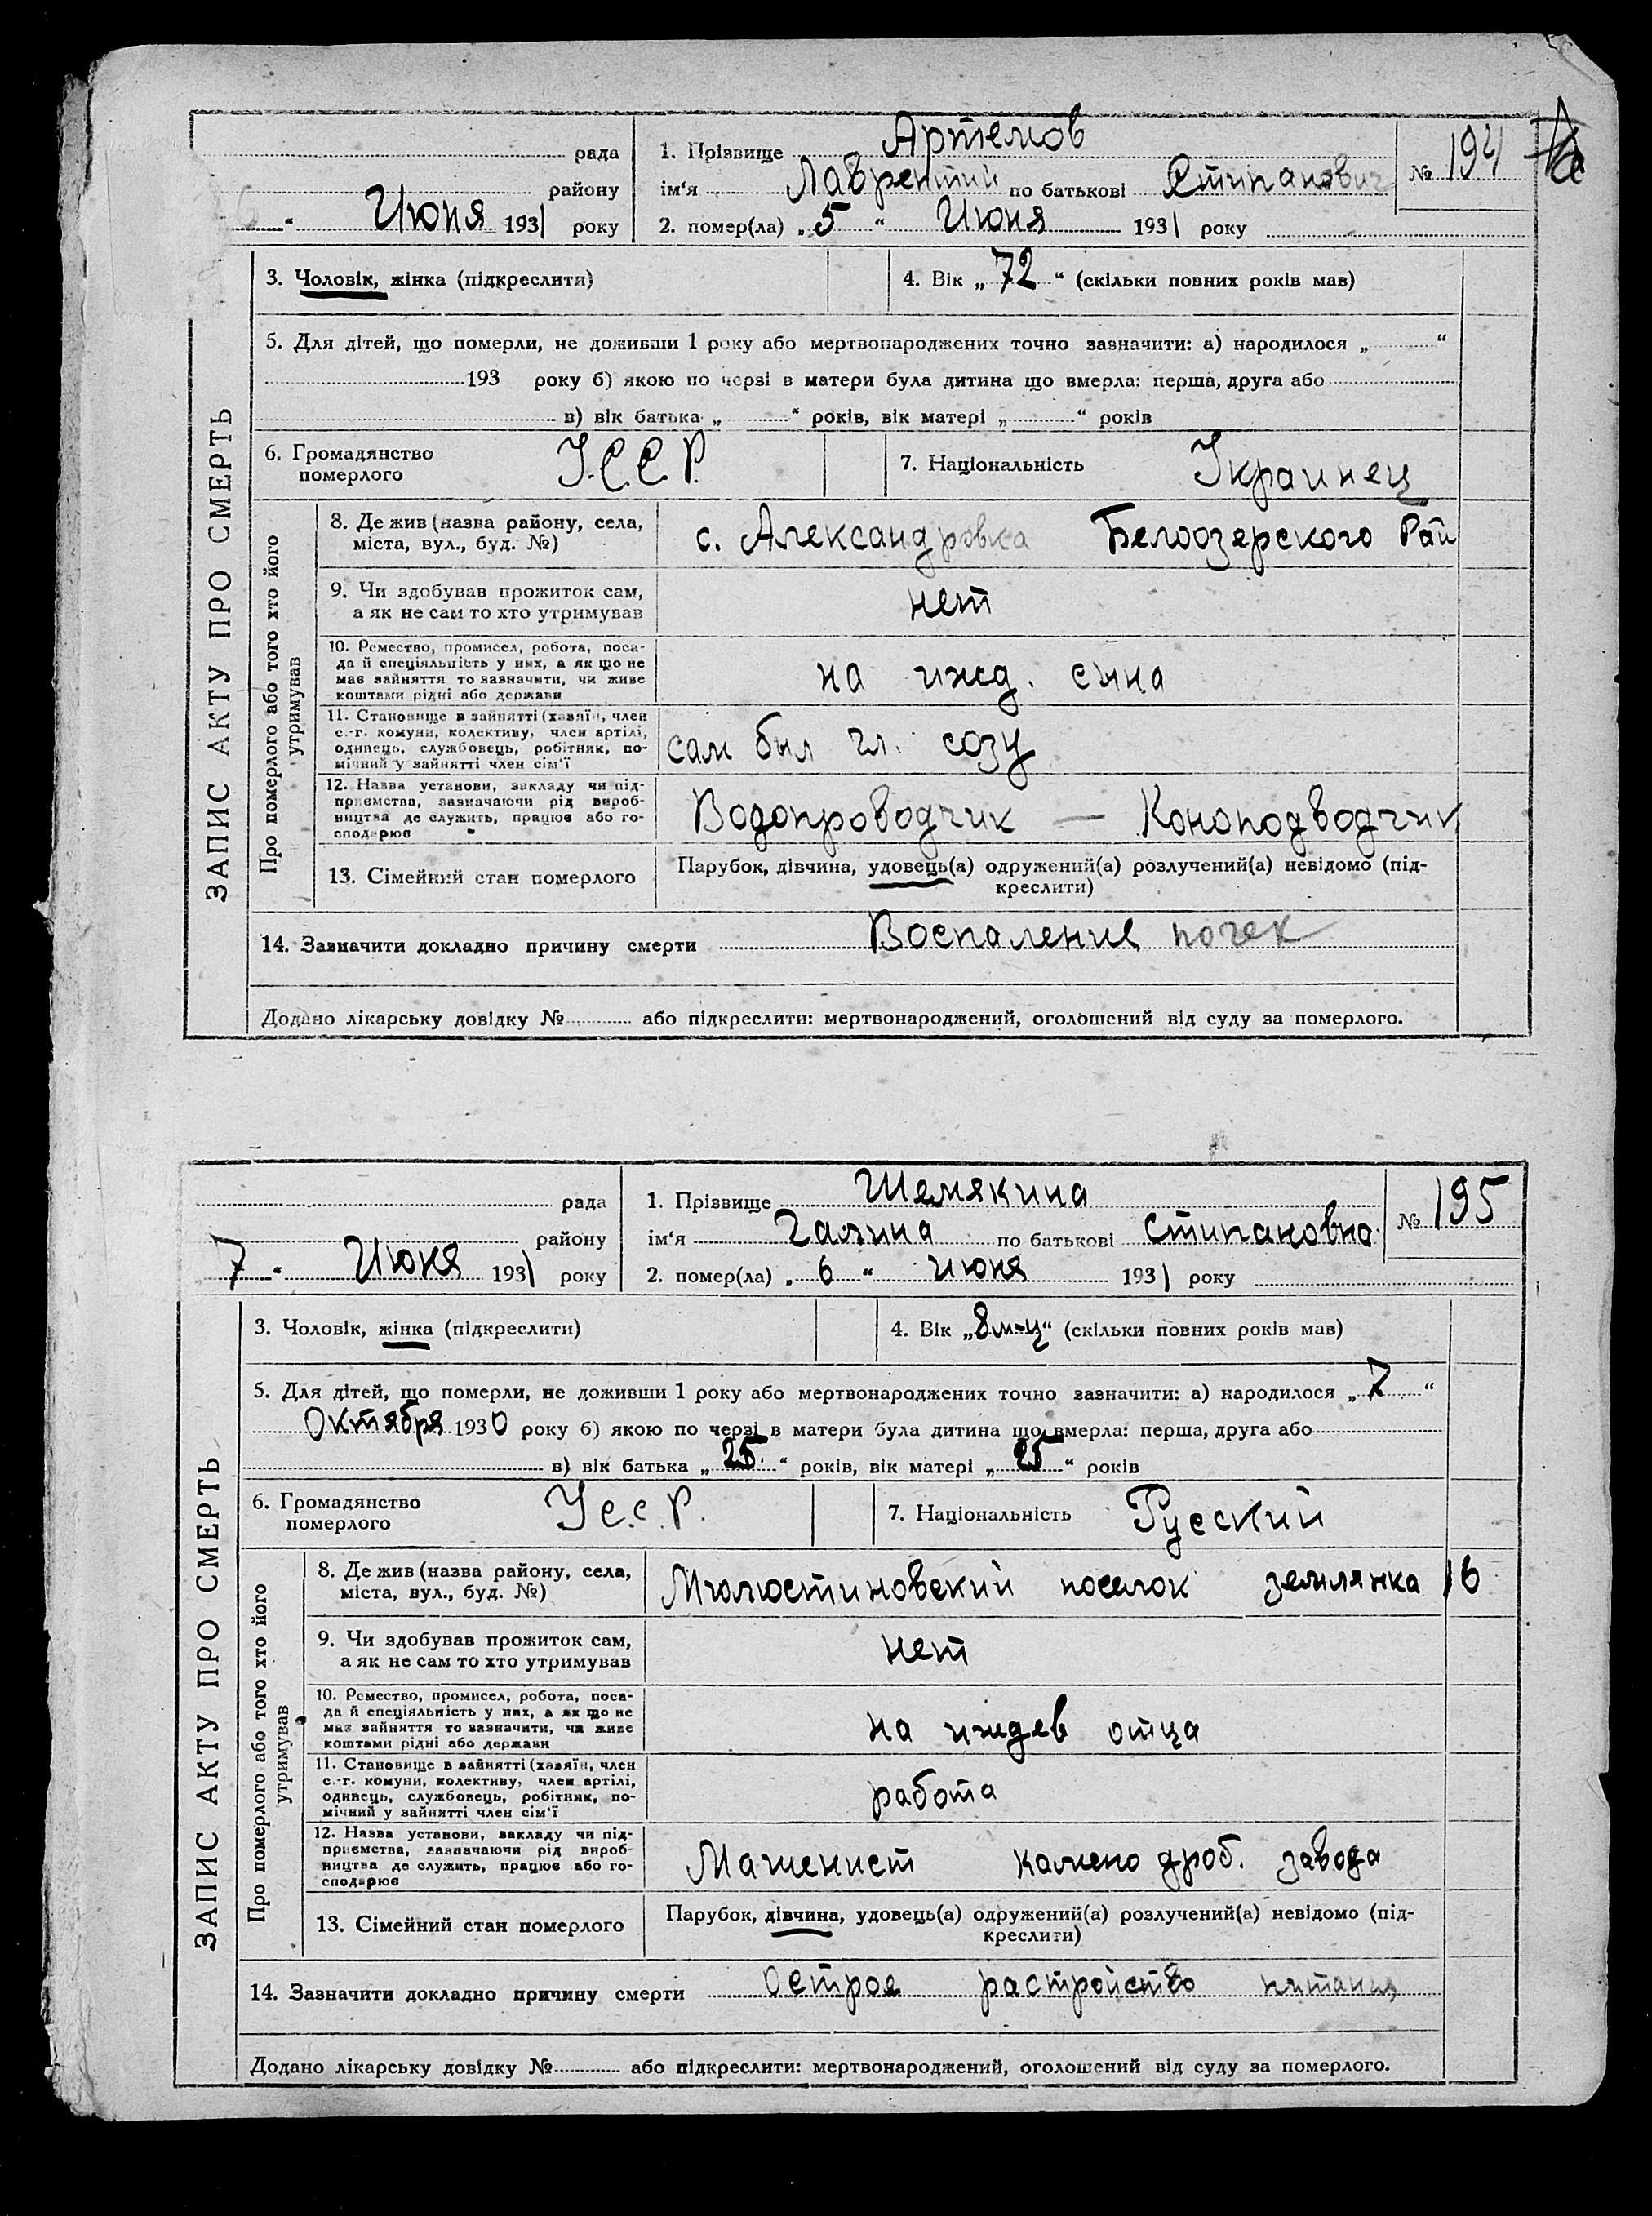 рада
району
6 " Июня 1931 року
1. Прізвище Артемов
ім'я Лаврентий по батькові Стипанович
2. помер(ла) „ 5 " Июня 1931 року
№ 194
ЗАПИС АКТУ ПРО СМЕРТЬ
3. Чоловік, жінка (підкреслити)
4. Вік „ 72 " (скільки повних років мав)
5. Для дітей, що померли, не доживши 1 року або мертвонароджених точно зазначити: а) народилося „ "
193 року б) якою по черзі в матери була дитина що вмерла: перша, друга або
в) вік батька „ " років, вік матері „ " років
6. Громадянство
померлого
У.С.С.Р.
7. Національність Украинец
Про померлого або того хто його
утримував
8. Де жив (назва району, села,
міста, вул., буд. №)
с. Александровка Белоозерского Рай
9. Чи здобував прожиток сам,
а як не сам то хто утримував
нет
10. Ремество, промисел, робота, поса-
да й спеціяльність у них, а як що не
має зайняття то зазначити, чи живе
коштами рідні або держави
на ижд. сына
11. Становище в зайнятті (хазяїн, член
с.-г. комуни, колективу, член артілі,
одинець, службовець, робітник, по-
мічний у зайнятті член сім'ї
сам был чл. созу
12. Назва установи, закладу чи під-
приємства, зазначаючи рід вироб-
ництва де служить, працює або го-
сподарює
Водопроводчик — Коноподводчик
13. Сімейний стан померлого
Парубок, дівчина, удовець(а) одружений(а) розлучений(а) невідомо (під-
креслити)
14. Зазначити докладно причину смерти Воспаление почек
Додано лікарську довідку № або підкреслити: мертвонароджений, оголошений від суду за померлого.
рада
району
7 " Июня 1931 року
1. Прізвище Шемякина
ім'я Галина по батькові Стипановна
2. помер(ла) „ 6 " июня 1931 року
№ 195
ЗАПИС АКТУ ПРО СМЕРТЬ
3. Чоловік, жінка (підкреслити)
4. Вік „8 м-ц" (скільки повних років мав)
5. Для дітей, що померли, не доживши 1 року або мертвонароджених точно зазначити: а) народилося „ 7 "
Октября 1930 року б) якою по черзі в матери була дитина що вмерла: перша, друга або
в) вік батька „ 25 " років, вік матері „ 25 " років
6. Громадянство
померлого
У с.с.Р.
7. Національність Русский
Про померлого або того хто його
утримував
8. Де жив (назва району, села,
міста, вул., буд. №)
поселок землянка 16
9. Чи здобував прожиток сам,
а як не сам то хто утримував
нет
10. Ремество, промисел, робота, поса-
да й спеціяльність у них, а як що не
має зайняття то зазначити, чи живе
коштами рідні або держави
на иждев отца
11. Становище в зайнятті (хазяїн, член
с.-г. комуни, колективу, член артілі,
одинець, службовець, робітник, по-
мічний у зайнятті член сім'ї
работа
12. Назва установи, закладу чи під-
приємства, зазначаючи рід вироб-
ництва де служить, працює або го-
сподарює
Машенист камено дроб. завода
13. Сімейний стан померлого
Парубок, дівчина, удовець(а) одружений(а) розлучений(а) невідомо (під-
креслити)
14. Зазначити докладно причину смерти Острое растройство питания
Додано лікарську довідку № або підкреслити: мертвонароджений, оголошений від суду за померлого.